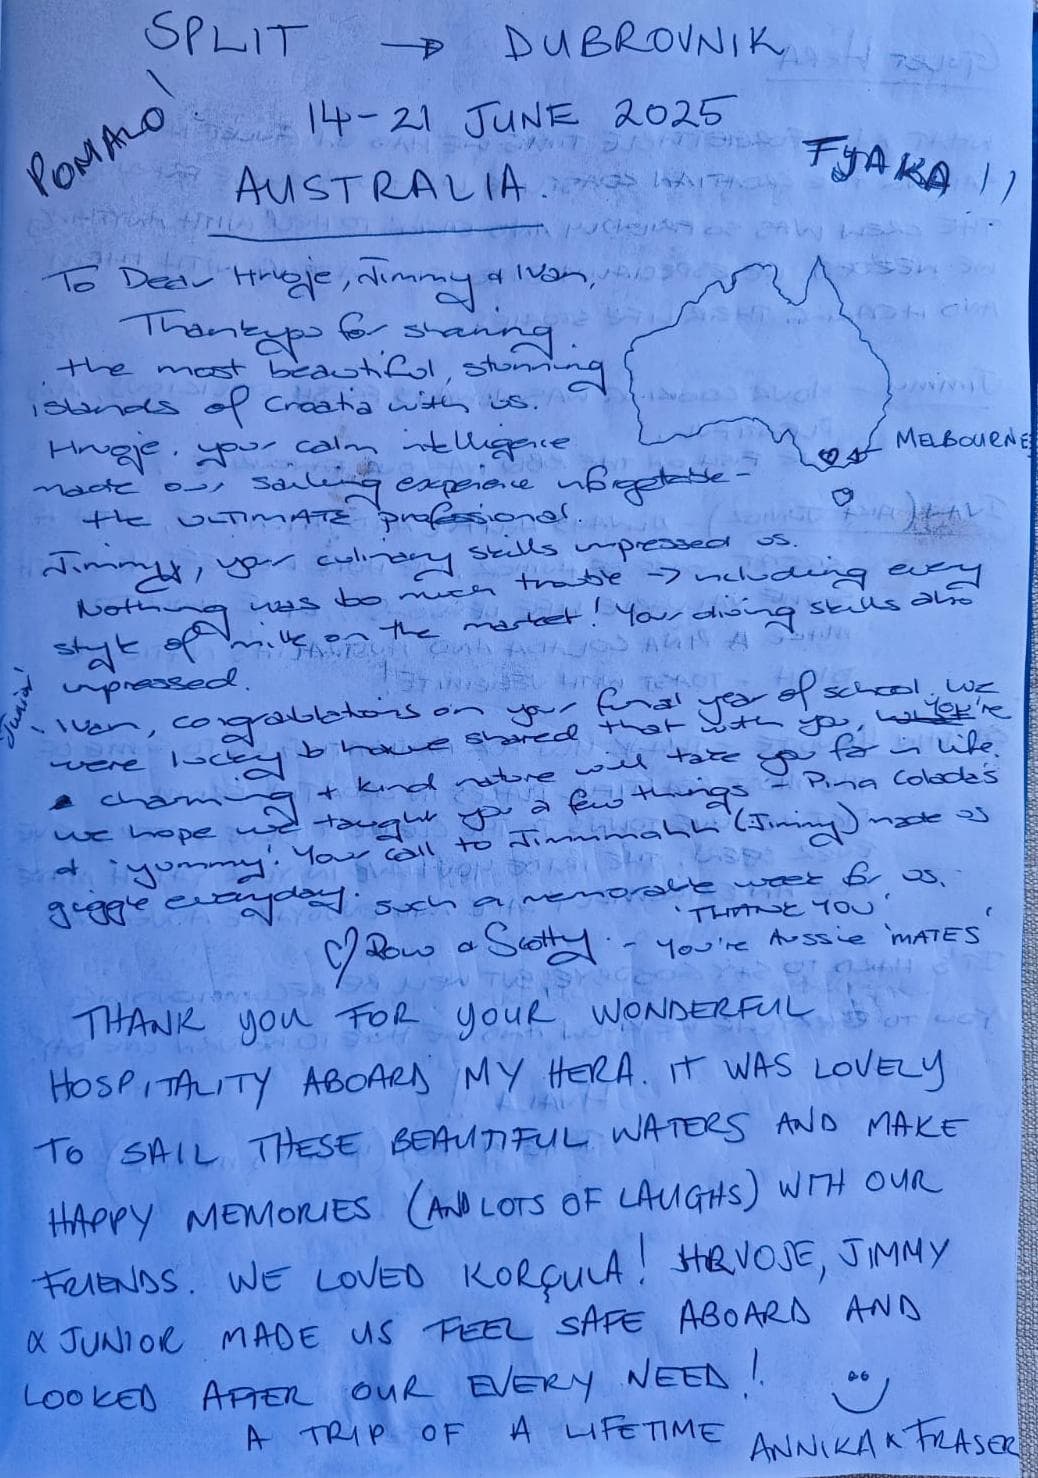 SPLIT → DUBROVNIK
POMALO
14-21 JUNE 2025
FJAKA !!
AUSTRALIA.
To Dear Hrvoje, Jimmy & Ivan,
Thankyou for sharing
the most beautiful, stunning
islands of Croatia with us.
MELBOURNE
Hrvoje. your calm intelligence
made our sailing experience unforgetable -
the ULTIMATE professional.
Jimmy, your culinary skills impressed us.
Nothing was too much trouble → including every
style of milk on the market! Your diving skills also
impressed.
'Junior'
Ivan, congratulations on your final year of school. We
were lucky to have shared that with you, you're
charming & kind nature will take you far in life.
We hope we taught you a few things - Pina Colada's
& 'yummy'. Your call to Jimmmahh (Jimmy) made us
giggle everyday. Such a memorable week for us.
'THANK YOU'
♡ Row & Scotty. - YOU'RE AUSSIE 'MATES'
THANK YOU FOR YOUR WONDERFUL
HOSPITALITY ABOARD MY HERA. IT WAS LOVELY
TO SAIL THESE BEAUTIFUL WATERS AND MAKE
HAPPY MEMORIES (AND LOTS OF LAUGHS) WITH OUR
FRIENDS. WE LOVED KORÇULA! HRVOJE, JIMMY
& JUNIOR MADE US FEEL SAFE ABOARD AND
LOOKED AFTER OUR EVERY NEED!
A TRIP OF A LIFETIME
ANNIKA & FRASER